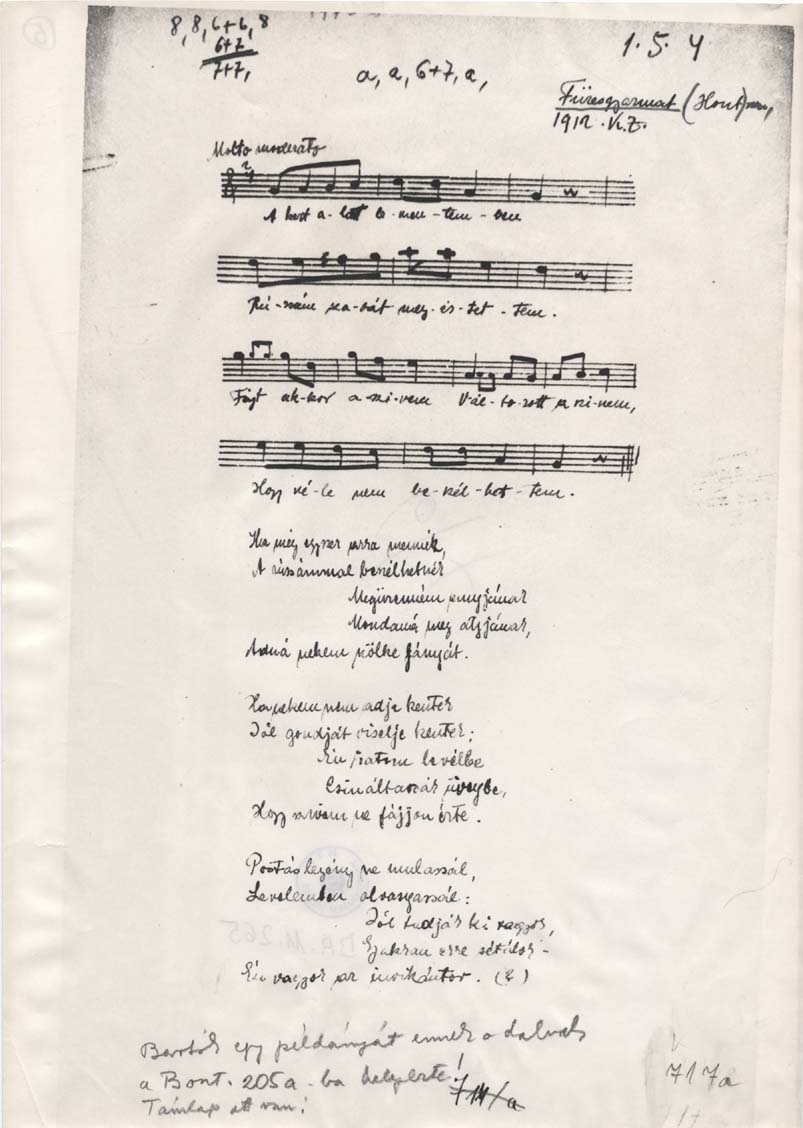 8, 8, 6+6, 8
6+7
7+7,
1. 5. 4
a, a, 6+7, a,
Füzesgyarmat (Hont)
1912. K.Z.
Molto moderato
A kert a-latt le-men-tem
Ró-zsám sza-vát meg-ös-tet-tem.
Fájt ak-kor a szi-vem Vál-to-zott a szi-nem,
Hogy vé-le nem be-szél-het-tem.
Ha még egyszer arra mennék,
A rózsámmal beszélhetnék
Megüzenném annyjának
Mondaná meg atyjának,
Adná nekem szőke lányát.
Ha nekem nem adja kentek
Jól gondját viselje kentek;
Én iratom levélbe
Csináltatnák üvegbe,
Hogy szivem ne fájjon érte.
Postáslegény ne mulassál,
Levelemben olvasgassál:
Jól tudják ki vagyok,
Gyakran erre sétálok -
Én vagyok az
Bartók egy példányát ennek a dalnak
a Bont. 205a -ba helyezte!
Támlap ott van!
717/a
717a
DA. M 265